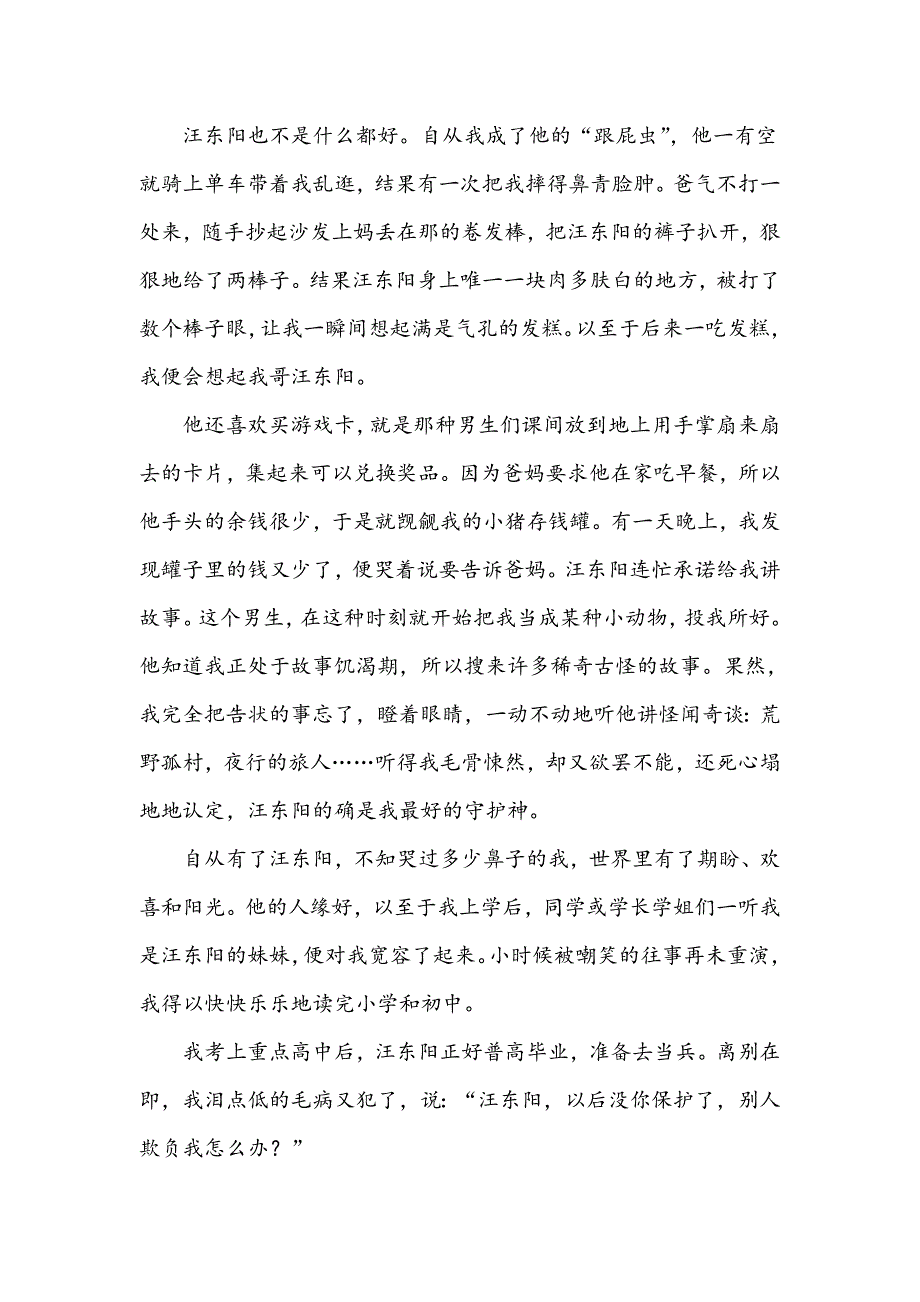 汪东阳也不是什么都好。自从我成了他的“跟屁虫”，他一有空
就骑上单车带着我乱逛，结果有一次把我摔得鼻青脸肿。爸气不打一
处来，随手抄起沙发上妈丢在那的卷发棒，把汪东阳的裤子扒开，狠
狠地给了两棒子。结果汪东阳身上唯一一块肉多肤白的地方，被打了
数个棒子眼，让我一瞬间想起满是气孔的发糕。以至于后来一吃发糕，
我便会想起我哥汪东阳。
他还喜欢买游戏卡，就是那种男生们课间放到地上用手掌扇来扇
去的卡片，集起来可以兑换奖品。因为爸妈要求他在家吃早餐，所以
他手头的余钱很少，于是就觊觎我的小猪存钱罐。有一天晚上，我发
现罐子里的钱又少了，便哭着说要告诉爸妈。汪东阳连忙承诺给我讲
故事。这个男生，在这种时刻就开始把我当成某种小动物，投我所好。
他知道我正处于故事饥渴期，所以搜来许多稀奇古怪的故事。果然，
我完全把告状的事忘了，瞪着眼睛，一动不动地听他讲怪闻奇谈：荒
野孤村，夜行的旅人……听得我毛骨悚然，却又欲罢不能，还死心塌
地地认定，汪东阳的确是我最好的守护神。
自从有了汪东阳，不知哭过多少鼻子的我，世界里有了期盼、欢
喜和阳光。他的人缘好，以至于我上学后，同学或学长学姐们一听我
是汪东阳的妹妹，便对我宽容了起来。小时候被嘲笑的往事再未重演，
我得以快快乐乐地读完小学和初中。
我考上重点高中后，汪东阳正好普高毕业，准备去当兵。离别在
即，我泪点低的毛病又犯了，说：“汪东阳，以后没你保护了，别人
欺负我怎么办？”